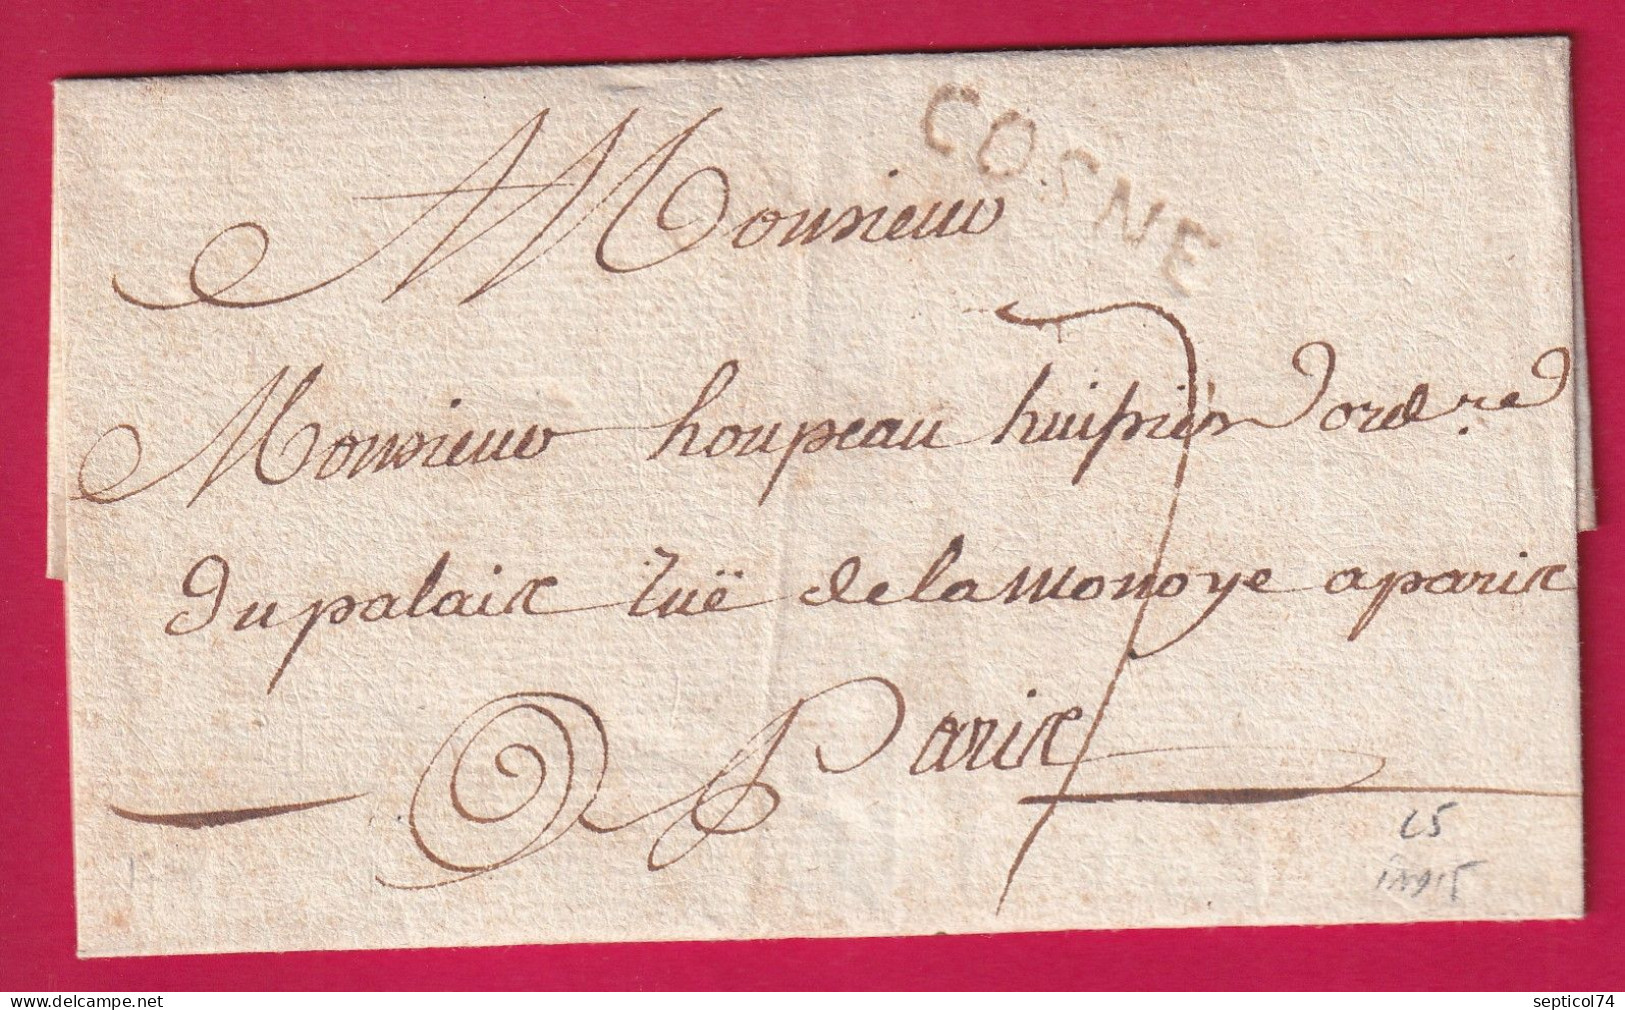 COSNE
Monsieur
Monsieur houpeau huissier Dordre
du palaix rüe de la monoye a parix
7
A Parix
L5
ind 15
septicol74